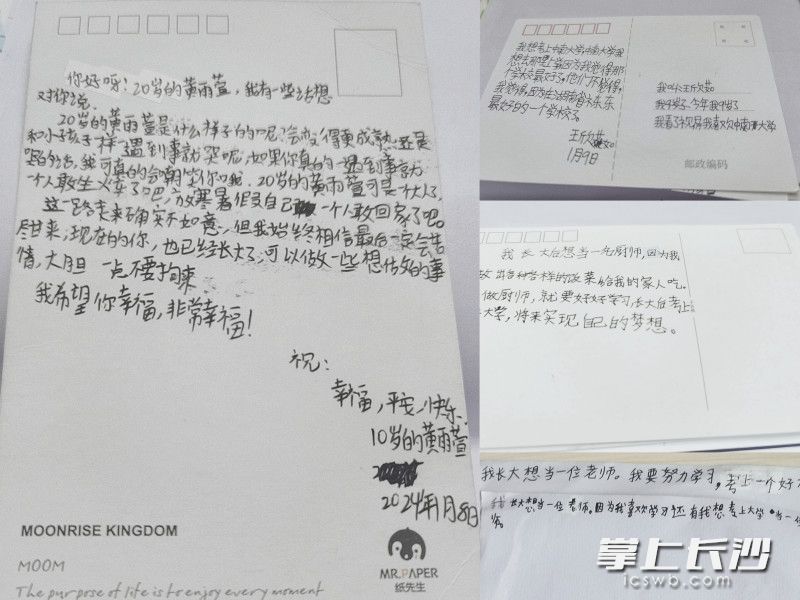 你好呀!20岁的黄雨萱,我有一些话想
对你说。
20岁的黄雨萱是什么样子的呢?会变得更成熟?还是
和小孩子一样遇到事就哭呢,如果你真的一遇到事就
哭的话,我可真的会嘲笑你哦。20岁的黄雨萱可是个大人了,
一个人敢坐火车了吧,放寒暑假自己一个人敢回家了吧。
这一路走来确实不如意,但我始终相信最后一定会苦
尽甘来,现在的你,也已经长大了,可以做一些想做的事
情,大胆一点不要拘束。
我希望你幸福,非常幸福!
祝:
幸福,平安,快乐
10岁的黄雨萱
2024年1月8日
MOONRISE KINGDOM
MOOM
The purpose of life is to enjoy every moment
MR.PAPER
纸先生
我想考上中南大学中南大学我
想去那里上学因为我觉得那
个学校最好了。他们不觉得,
我觉得,因为在湖南省长乐
最好的一个学校了。
王欣茹
1月9日
我叫王欣茹
我9岁了今年我9岁了
我喜欢中南大学
邮政编码
我长大后想当一名厨师,因为我
做出各种各样的饭菜给我的家人吃。
做厨师,就要好好学习长大后考上
大学,将来实现自己的梦想。
我长大想当一位老师。我要努力学习,考上一个好
我长大想当一位老师。因为我喜欢学习还有我想考上大学当一位
老师。
掌上长沙
icswb.com